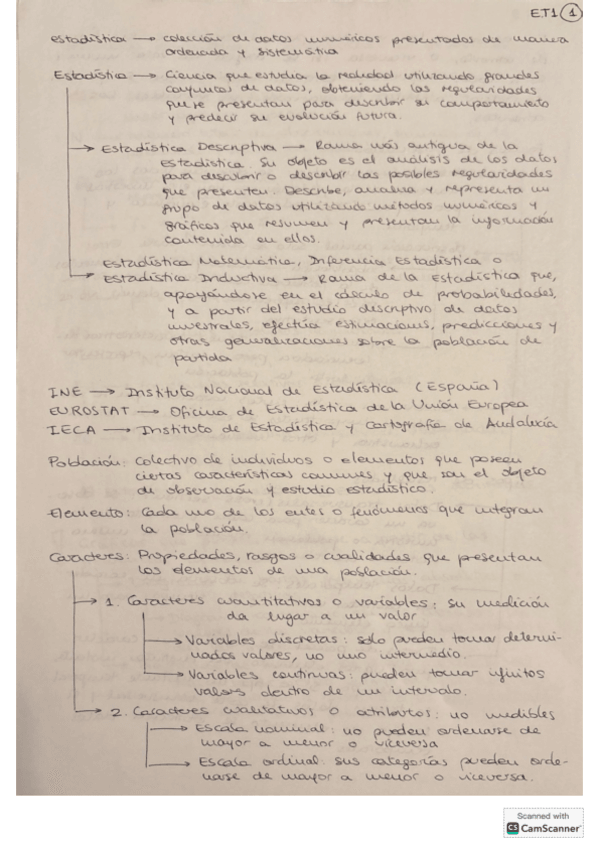 ET1 1
estadística → colección de datos numéricos presentados de manera
ordenada y sistemática
Estadística → Ciencia que estudia la realidad utilizando grandes
conjuntos de datos, obteniendo las regularidades
que se presentan para describir su comportamiento
y predecir su evolución futura.
→ Estadística Descriptiva → Rama más antigua de la
estadística. Su objeto es el análisis de los datos
para descubrir o describir las posibles regularidades
que presenten. Describe, analiza y representa un
grupo de datos utilizando métodos numéricos y
gráficos que resumen y presentan la información
contenida en ellos.
Estadística Matemática, Inferencia Estadística o
→ Estadística Inductiva → Rama de la Estadística que,
apoyándose en el cálculo de probabilidades,
y a partir del estudio descriptivo de datos
muestrales, efectúa estimaciones, predicciones y
otras generalizaciones sobre la población de
partida
INE → Instituto Nacional de Estadística (España)
EUROSTAT → Oficina de Estadística de la Unión Europea
IECA → Instituto de Estadística y Cartografía de Andalucía
Población: Colectivo de individuos o elementos que poseen
ciertas características comunes y que son el objeto
de observación y estudio estadístico.
Elemento: Cada uno de los entes o fenómenos que integran
la población.
Caracteres: Propiedades, rasgos o cualidades que presentan
los elementos de una población.
→ 1. Caracteres cuantitativos o variables: su medición
da lugar a un valor
→ Variables discretas: solo pueden tomar determi-
nados valores, no uno intermedio.
→ Variables continuas: pueden tomar infinitos
valores dentro de un intervalo.
→ 2. Caracteres cualitativos o atributos: no medibles
→ Escala nominal: no pueden ordenarse de
mayor a menor o viceversa
→ Escala ordinal: sus categorías pueden orde-
narse de mayor a menor o viceversa.
Scanned with
CS CamScanner